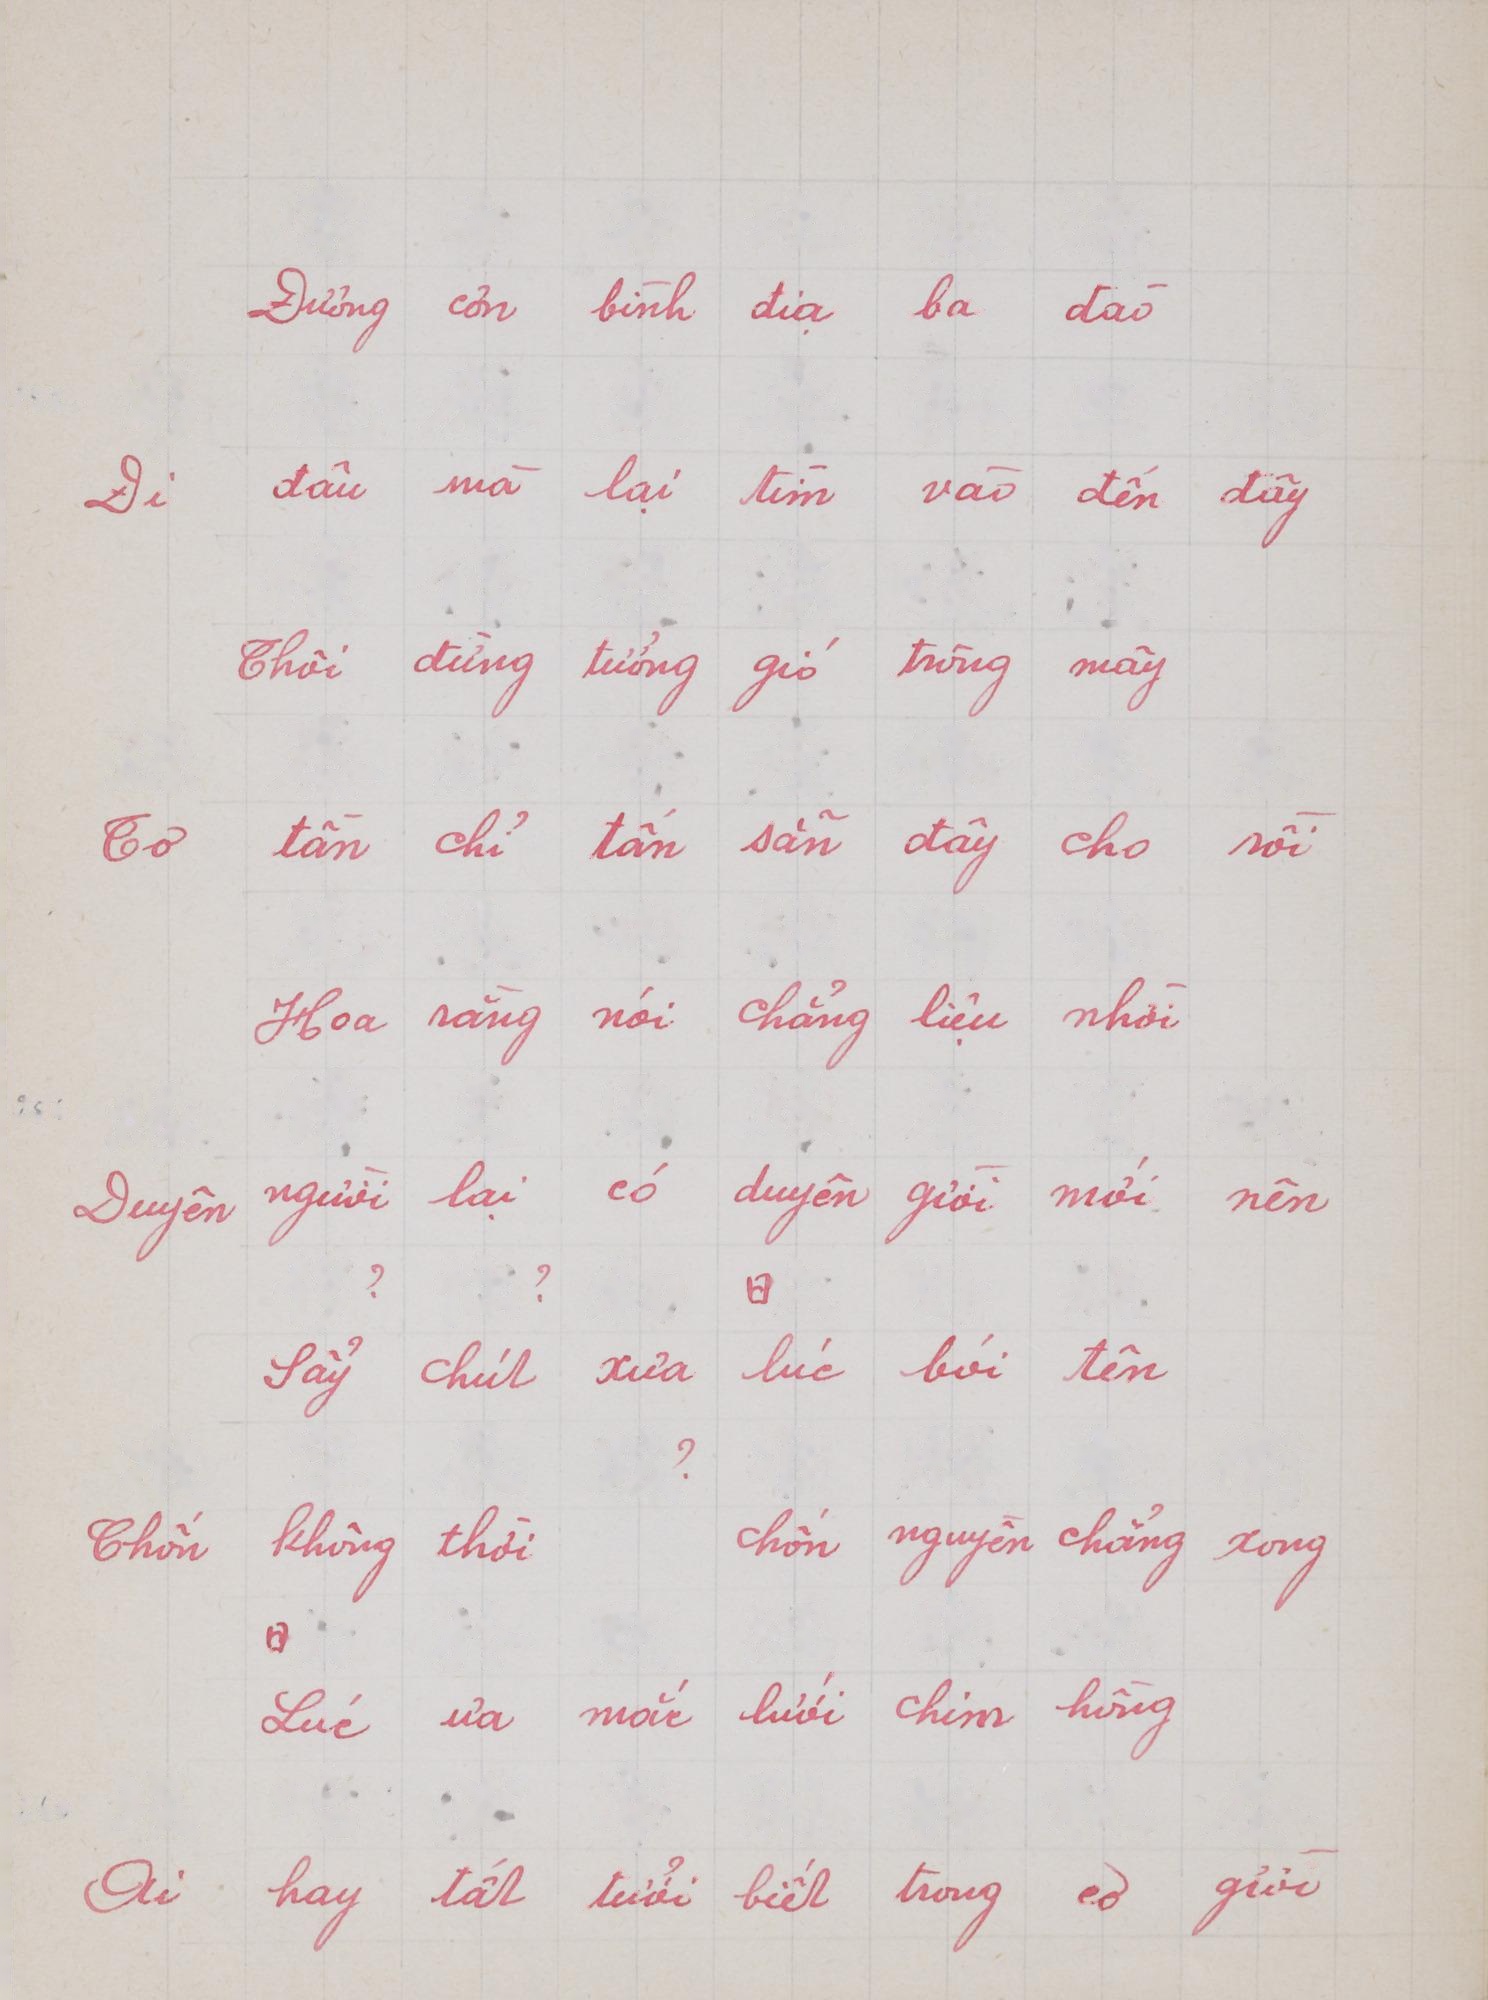 Đương cơn bình địa ba đào
Đi đâu mà lại tìm vào đến đây
Thôi đừng tưởng gió trông mây
Tơ tần chỉ tấn sẵn đây cho rồi
Hoa rằng nói chẳng liệu nhời
Duyên người lại có duyên giời mới nên
? ?
Sẩy chút xưa lúc bói tên
?
Chốn không thời chốn nguyền chẳng xong
Lúc ưa mắc lưới chim hồng
Ai hay tất tưởi biết trong cơ giời